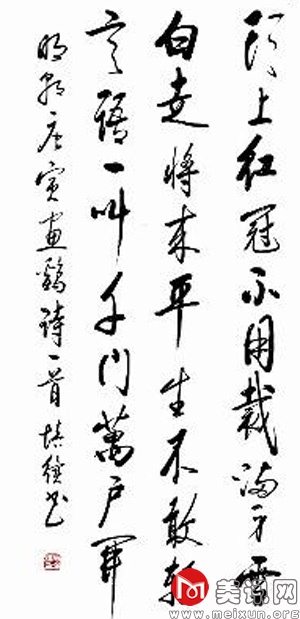 头上红冠不用裁满身雪
白走将来平生不敢轻
言語一叫千门萬户開
明朝唐寅画鷄诗一首 书
美讯网
www.meixun.org